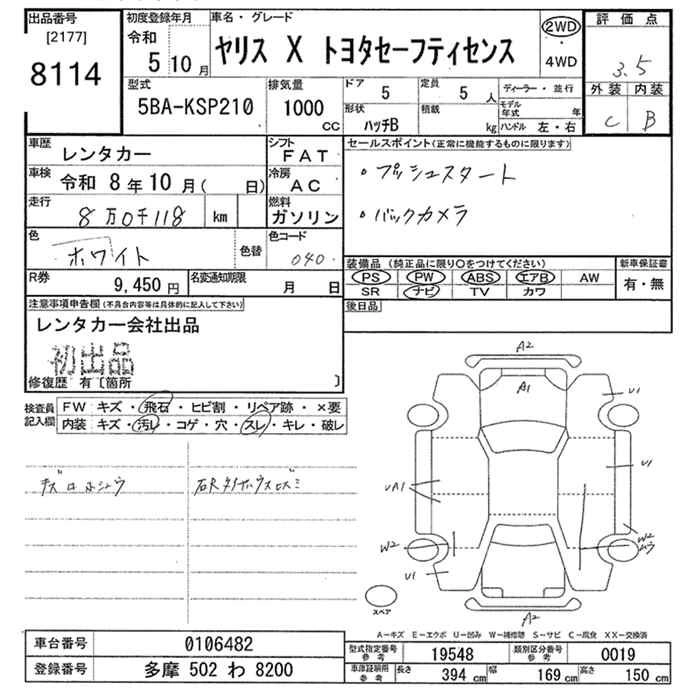 出品番号
[2177]
8114
初度登録年月
令和
5 10月
車名・グレード
ヤリス X トヨタセーフティセンス
2WD
・
4WD
評価点
3.5
外装 内装
C B
型式
5BA-KSP210
排気量
1000
CC
ドア
5
定員
5人
ディーラー・並行
形状
ハッチB
積載
kg
モデル年式
年
ハンドル 左・右
車歴
レンタカー
シフト
FAT
車検
令和 8年10月( 日)
冷房
AC
走行
8万0千118 km
燃料
ガソリン
色
ホワイト
色替
色コード
040
R券
9,450円
名変通知期限
月 日
セールスポイント(正常に機能するものに限ります)
・プッシュスタート
・バックカメラ
装備品(純正品に限り○をつけてください)
PS PW ABS エアB AW
SR ナビ TV カワ
新車保証書
有・無
後日品
注意事項申告欄(不具合内容等は具体的に記入して下さい)
レンタカー会社出品
初出品
修復歴 有〔箇所 〕
検査員
記入欄
FW キズ・飛石・ヒビ割・リペア跡・×要
内装 キズ・汚レ・コゲ・穴・スレ・キレ・破レ
キズロホシュウ
A2
A1
U1
U1
UA1
W2
W2
U1
A2
スペア
A-キズ E-エクボ U-凹み W-補修跡 S-サビ C-腐食 XX-交換済
車台番号
0106482
登録番号
多摩 502 わ 8200
型式指定番号
参考
19548
類別区分番号
参考
0019
車庫証明用
参考
長さ
394 cm
幅
169 cm
高さ
150 cm